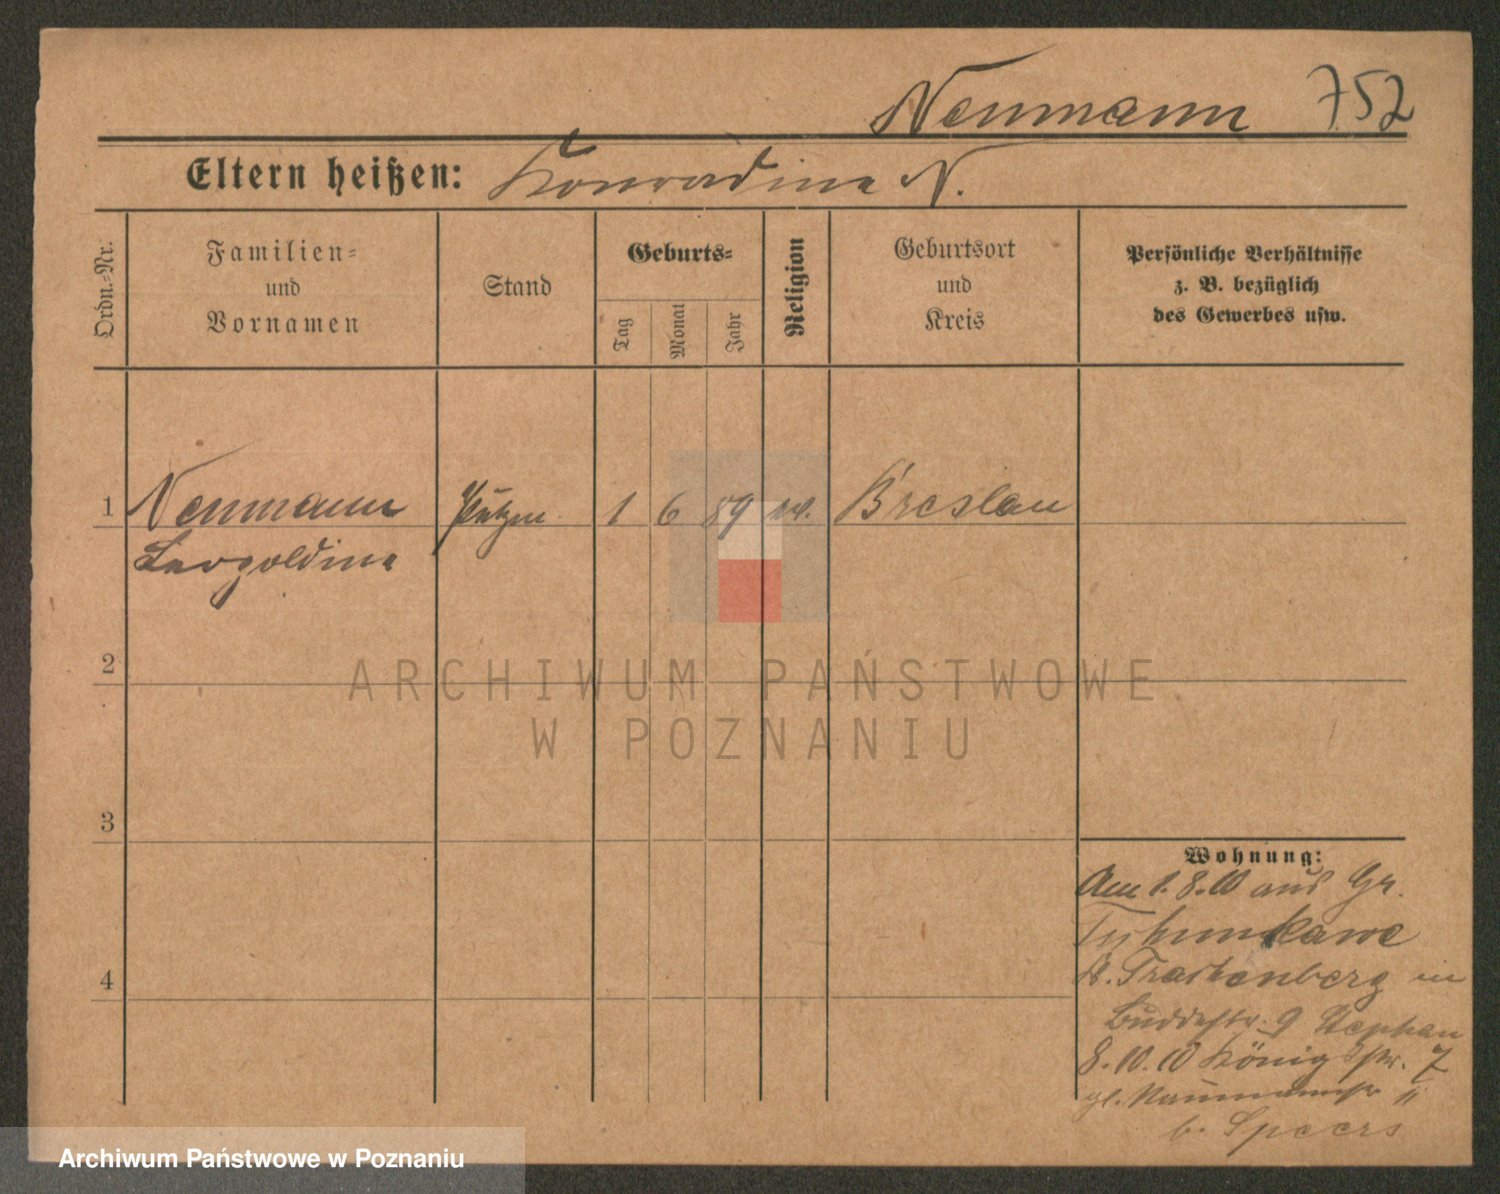 Neumann 752
Eltern heißen: Konradine N.
Ordn.-Nr.
Familien=
und
Vornamen
Stand
Geburts=
Tag
Monat
Jahr
Religion
Geburtsort
und
Kreis
Persönliche Verhältnisse
z. B. bezüglich
des Gewerbes usw.
1 Neumann 1 6 89 Breslau
Leopoldine
2
3
4
Wohnung:
Am 1.8.10 aus Gr.
Trachenberg in
Buddestr. 9 Stephan
8.10.10 Königstr. 7
b. Speers
ARCHIWUM PAŃSTWOWE
W POZNANIU
Archiwum Państwowe w Poznaniu